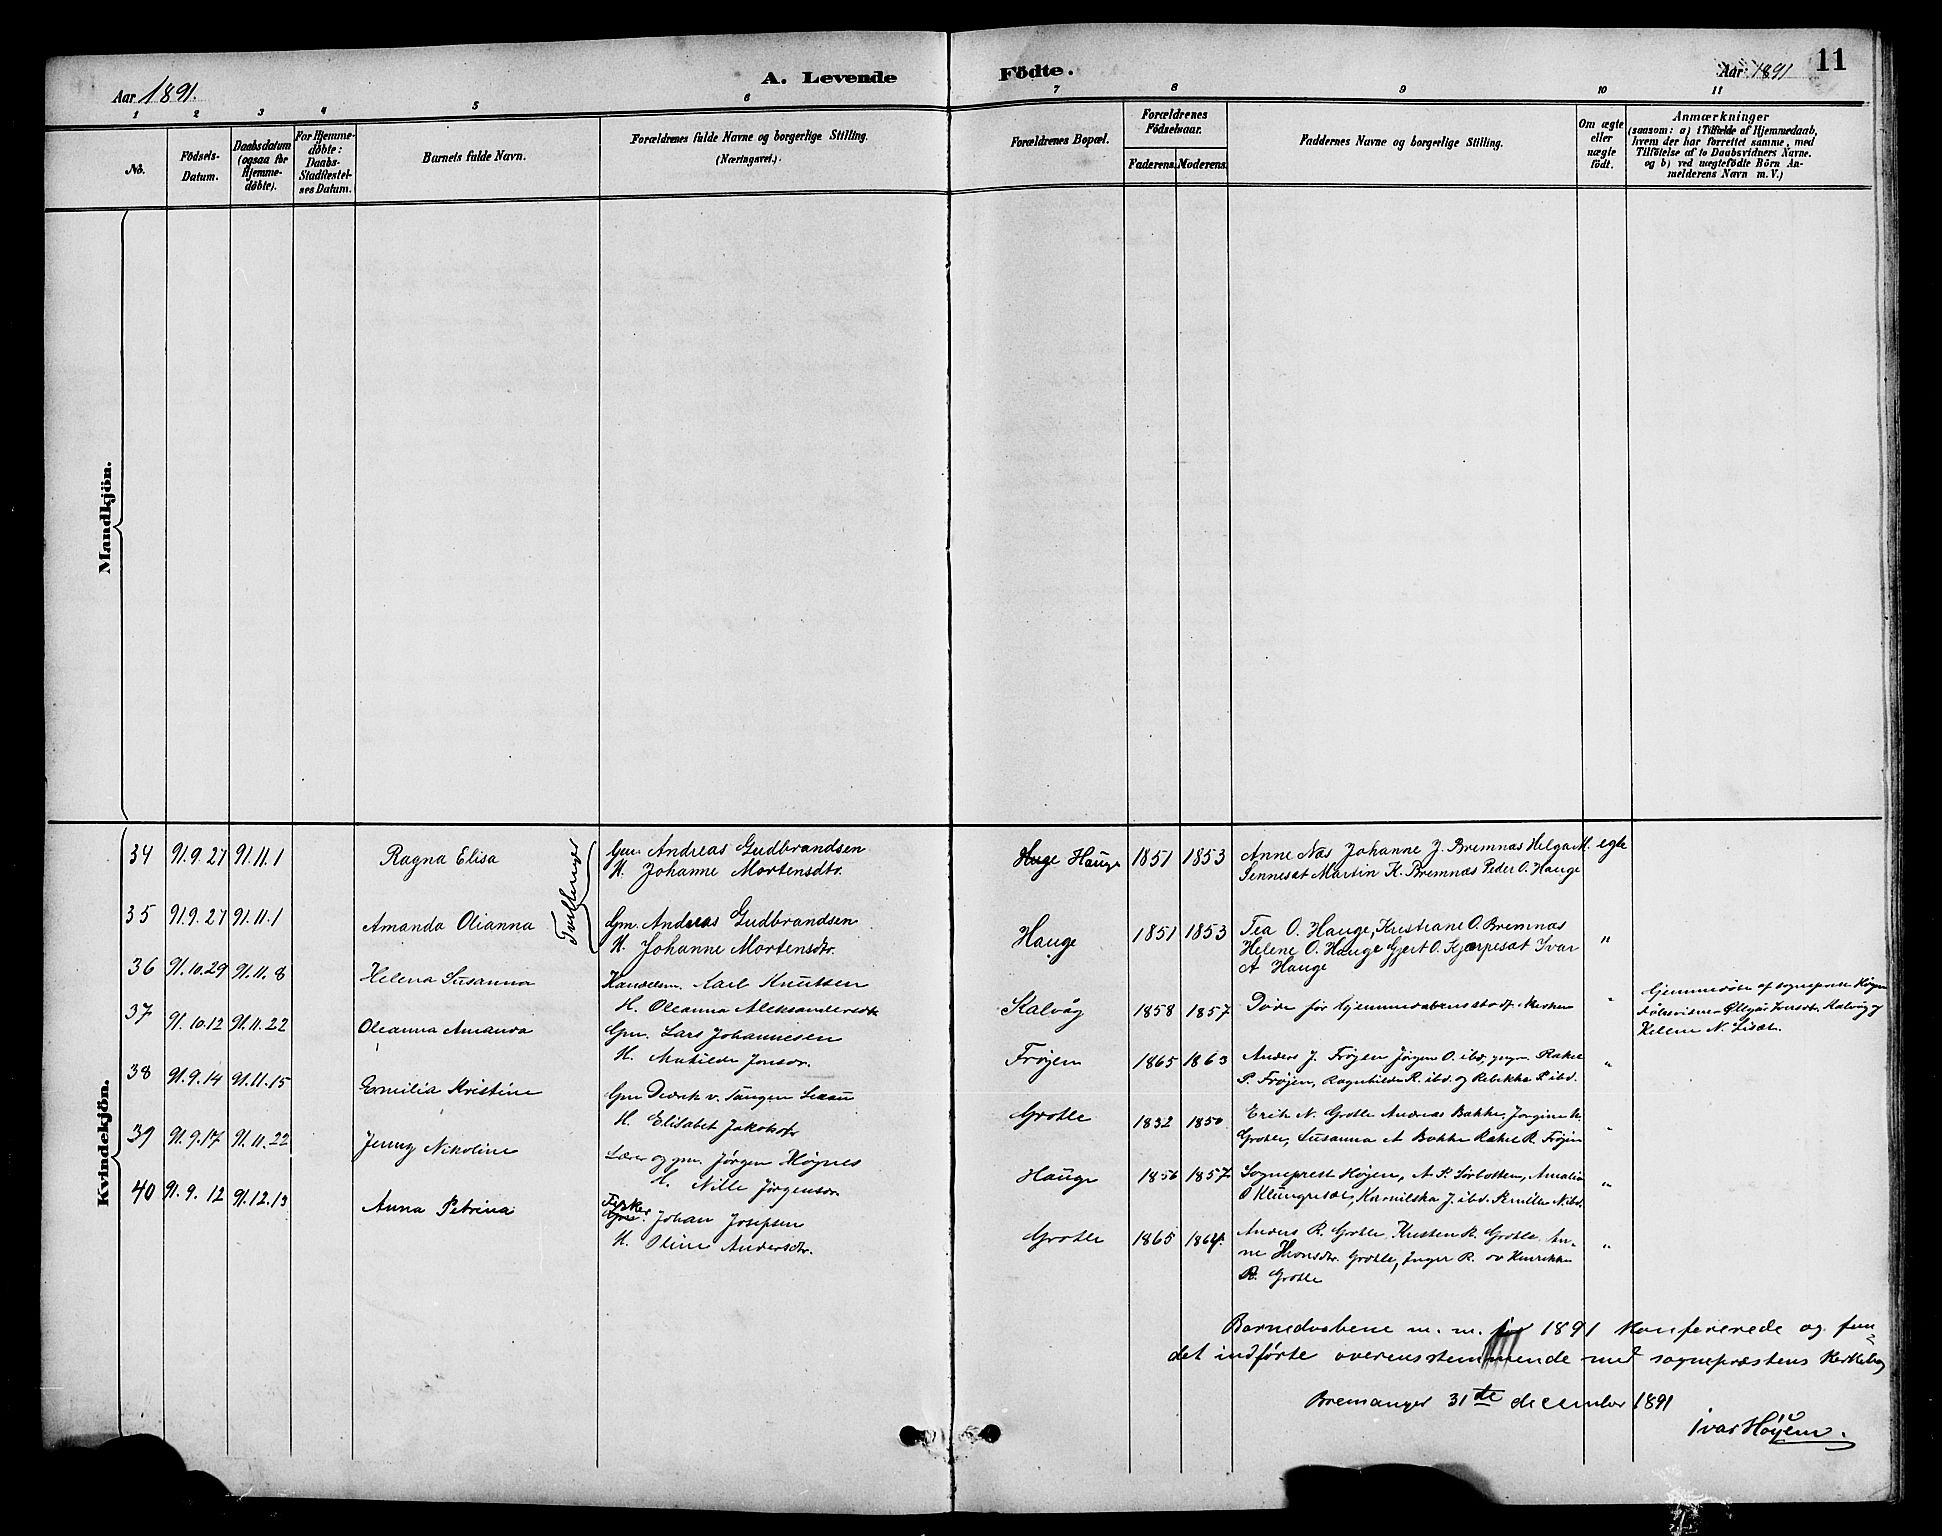 Aar 1891.
A. Levende Födte.
Aar 1891
11
1 2 3 4 5 6 7 8 9 10 11
No.
Födsels-
Datum.
Daabsdatum
(ogsaa for
Hjemme-
døbte).
For Hjemme-
døbte:
Daabs-
Stadfæstel-
ses Datum.
Barnets fulde Navn.
Forældrenes fulde Navne og borgerlige Stilling.
(Næringsvei.)
Forældrenes Bopæl.
Forældrenes
Fødselsaar.
Faderens. Moderens.
Faddernes Navne og borgerlige Stilling.
Om ægte
eller
uægte
født.
Anmærkninger
(saasom: a) i Tilfælde af Hjemmedaab,
hvem der har forrettet samme, med
Tilføielse af to Daabsvidners Navne.
og b) ved uægtefødte Börn An-
melderens Navn m. V.)
Mandkjön.
Kvindekjön.
Tvillinger
34 91.9.27 91.11.1 Ragna Elisa Gm. Andreas Gudbrandsen Hauge 1851 1853 Anne Næs Johanne J. Bremnæs Helga M. egte
H. Johanne Mortensdtr. Sennesæt Martin K. Bremnæs Peder O. Hauge
35 91.9.27 91.11.1 Amanda Olianna Gm. Andreas Gudbrandsen Hauge 1851 1853 Tea O. Hauge, Kristiane O. Bremnæs "
H. Johanne Mortensdtr. Helene O. Hauge Gjert O. Kjærpesæt Ivar
A Hauge
36 91.10.29 91.11.8 Helena Susanna Handelsm. Karl Knutsen Kalvåg 1858 1857 Døde før hjemmedaabens stadf. "
H. Oleanna Aleksandersdtr Hjemmedøbt af sogneprest Høyem
Helene N. Liset.
37 91.10.12 91.11.22 Oleanna Amanda Gm. Lars Johannesen Frøjen 1865 1863 Anders J. Frøjen Jørgen O. ibd. Rakel "
H. Matilde Jonsdr. P. Frøjen, Ragnhilde R. ibd. og Rebekka P. ibd.
38 91.9.14 91.11.15 Emilia Kristine Gm Didrik v. Tangen Grotle 1832 1850 Erik N. Grotle Andreas Bakke, Jorgine "
H. Elisabet Jakobsdr Grotle, Susanna A Bakke Rakel R. Frøjen
39 91.9.17 91.11.22 Jenny Nikoline Lærer og gm. Jørgen Høgnes Hauge 1856 1857 Sogneprest Høyem, A. P. Sørbotten, Amalia "
H. Nille Jørgensdr O Klungresæt, J. ibd. N. ibd.
40 91.9.12 91.12.13 Anna Petrina Fisker Johan Josefsen Grotle 1865 1864. Anders R. Grotle, Kristen R. Grotle, An- "
H. Oline Andersdtr. ne Hansdtr. Grotle, Inger R. ov Henrikke
R. Grotle
Barnedaabene m. m. for 1891 konfererede og fun-
det indførte overensstemmende med sognepræstens kerkebog
Bremanger 31te december 1891
Ivar Høyem.